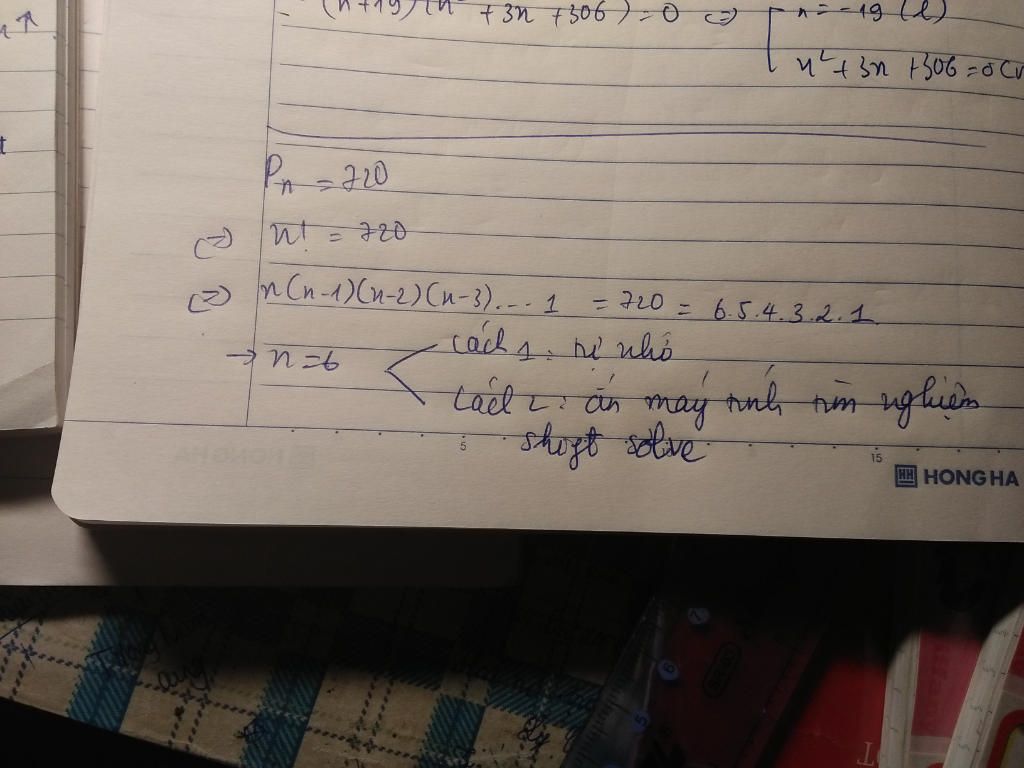 (n+19)(n² + 3n + 306) = 0 <=> n = -19 (l)
n² + 3n + 306 = 0 (v
Pn = 720
<=> n! = 720
<=> n(n-1)(n-2)(n-3)...1 = 720 = 6.5.4.3.2.1
→ n = 6
Cách 1: tự nhớ
Cách 2: ấn máy tính tìm nghiệm
shift solve
5
15
HH HONG HA